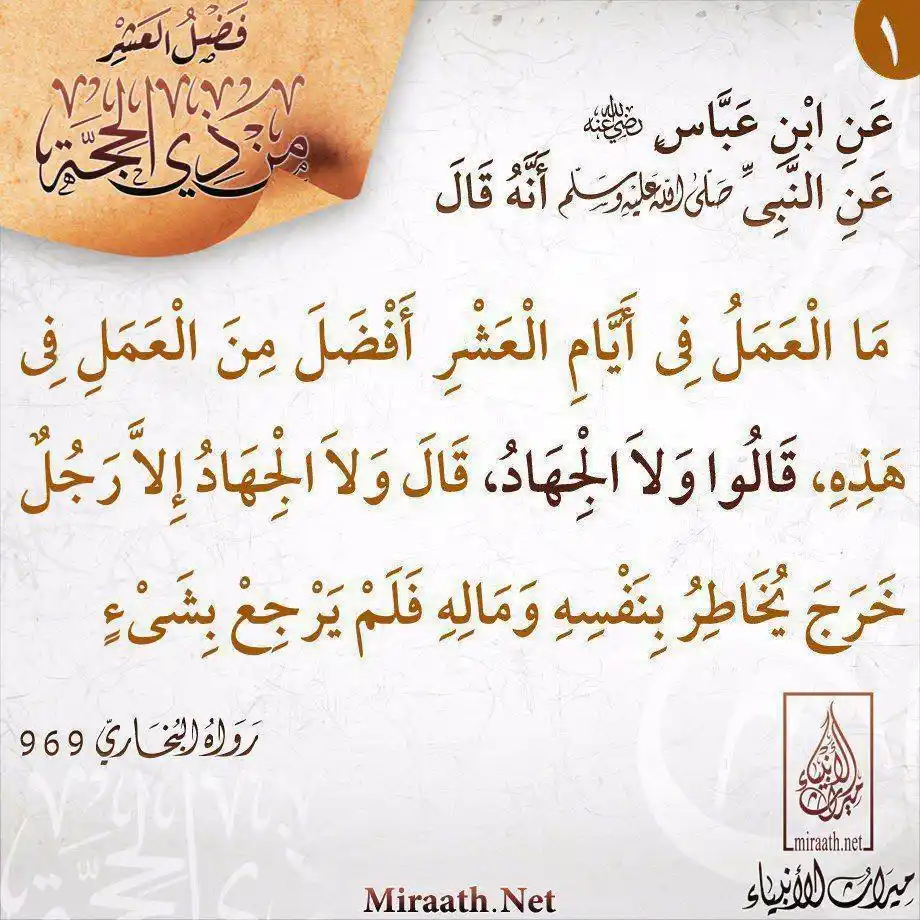 ١
فَضْلُ العَشْرِ
مِنْ ذِي الحِجَّة
عَنِ ابْنِ عَبَّاسٍ رضي الله عنه
عَنِ النَّبِىِّ صَلَّى اللَّهُ عَلَيْهِ وَسَلَّمَ أَنَّهُ قَالَ
مَا الْعَمَلُ فِى أَيَّامِ الْعَشْرِ أَفْضَلَ مِنَ الْعَمَلِ فِى
هَذِهِ، قَالُوا وَلاَ الْجِهَادُ، قَالَ وَلاَ الْجِهَادُ إِلاَّ رَجُلٌ
خَرَجَ يُخَاطِرُ بِنَفْسِهِ وَمَالِهِ فَلَمْ يَرْجِعْ بِشَىْءٍ
رَوَاهُ البُخَارِيّ 969
ميراث الأنبياء
miraath.net
ميراث الأنبياء
Miraath.Net